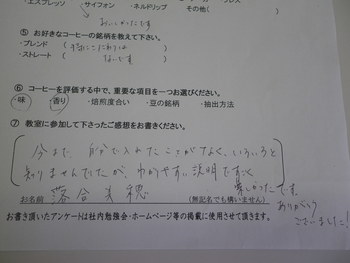 ・エスプレッソ ・サイフォン ・ネルドリップ その他(
おいしかったです
⑤ お好きなコーヒーの銘柄を教えて下さい。
・ブレンド ( 特にこだわりは
・ストレート ( ないです )
⑥ コーヒーを評価する中で、重要な項目を一つお選びください。
・味 ・香り ・焙煎度合い ・豆の銘柄 ・抽出方法
⑦ 教室に参加して下さったご感想をお書きください。
今まで、自分で入れたことがなく、いろいろと
知りませんでしたが、わかりやすい説明ですごく
楽しかったです。
ありがとう
ございました!
お名前 落合美穂 (無記名でも構いません)
お書き頂いたアンケートは社内勉強会・ホームページ等の掲載に使用させて頂きます。